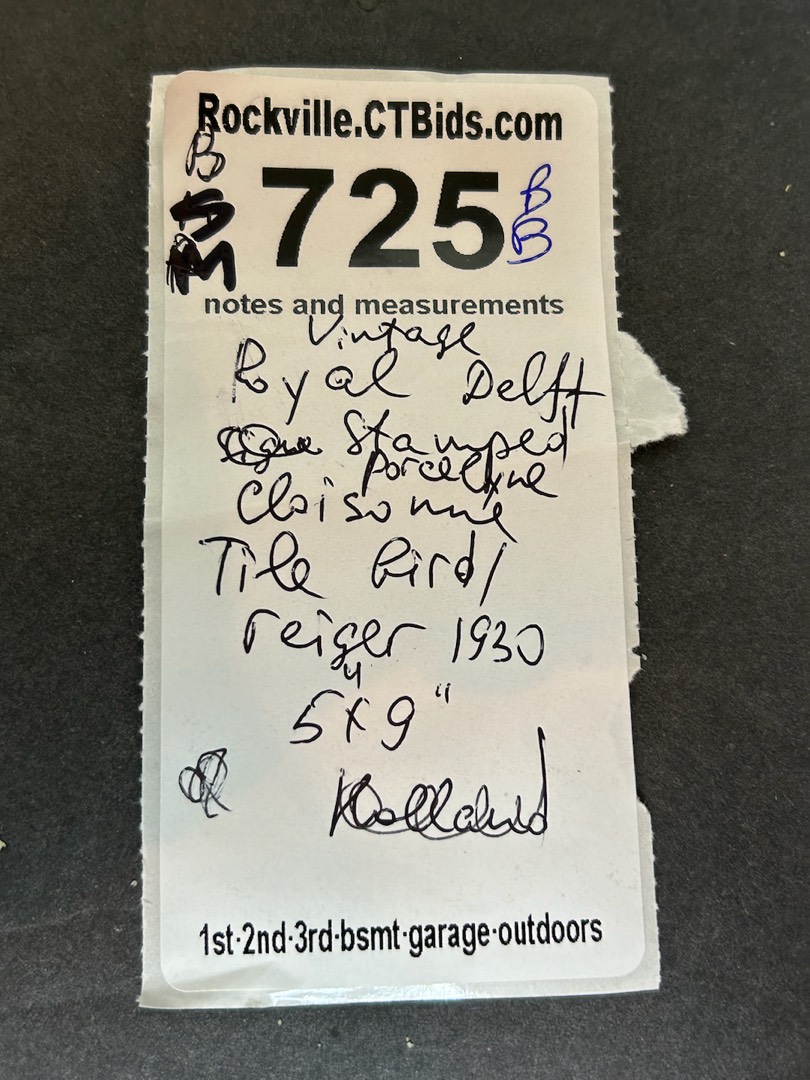 Rockville.CTBids.com
B
725
B
B
notes and measurements
Vintage
Royal Delft
Stamped
Porcelyne
Cloisonne
Tile Bird/
reiger 1930
5"x9"
Holland
1st·2nd·3rd·bsmt·garage·outdoors